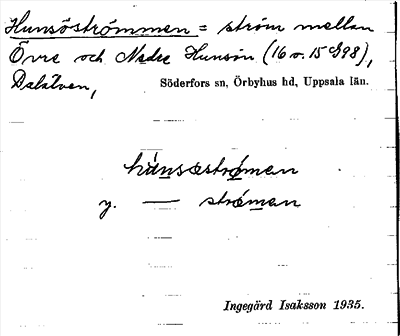 Hunsöströmmen = ström mellan
Övre och Nedre Hunsön (16 o. 15 S98),
Dalälven,
Söderfors sn, Örbyhus hd, Uppsala län.
hùnsœstrǿmen
y. — strǿmen
Ingegärd Isaksson 1935.